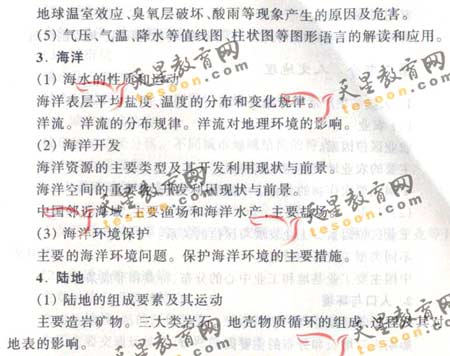 地球温室效应、臭氧层破坏、酸雨等现象产生的原因及危害。
(5) 气压、气温、降水等值线图、柱状图等图形语言的解读和应用。
3. 海洋
(1) 海水的性质和运动
海洋表层平均盐度、温度的分布和变化规律。
洋流。洋流的分布规律。洋流对地理环境的影响。
(2) 海洋开发
海洋资源的主要类型及其开发利用现状与前景。
海洋空间的重要性、开发利用现状与前景。
中国邻近海域、主要渔场和海洋水产、主要盐场。
(3) 海洋环境保护
主要的海洋环境问题。保护海洋环境的主要措施。
4. 陆地
(1) 陆地的组成要素及其运动
主要造岩矿物。三大类岩石。地壳物质循环的组成、过程及其对
地表的影响。
天星教育网
tesoon.com
天星教育网
tesoon.com
天星教育网
tesoon.com
天星教育网
tesoon.com